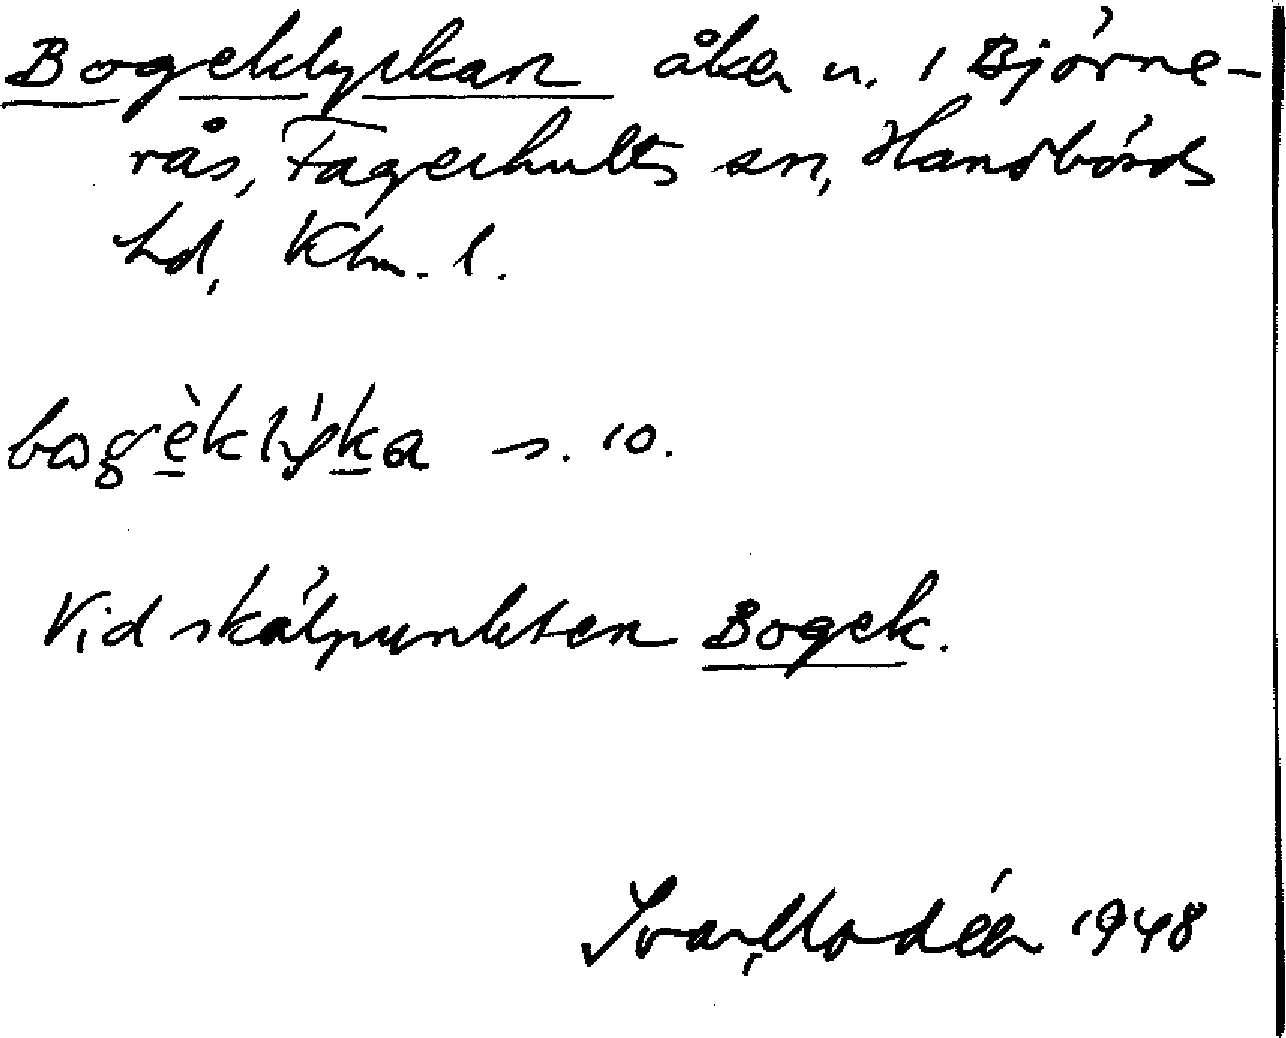 Bogeklyckan åker n. i Björne-
rås, Fagerhults sn, Handbörds
hd, Klm. l.
bogèklýka s. 10.
Vid skälpunkten Bogek.
Ivar Modéer 1948